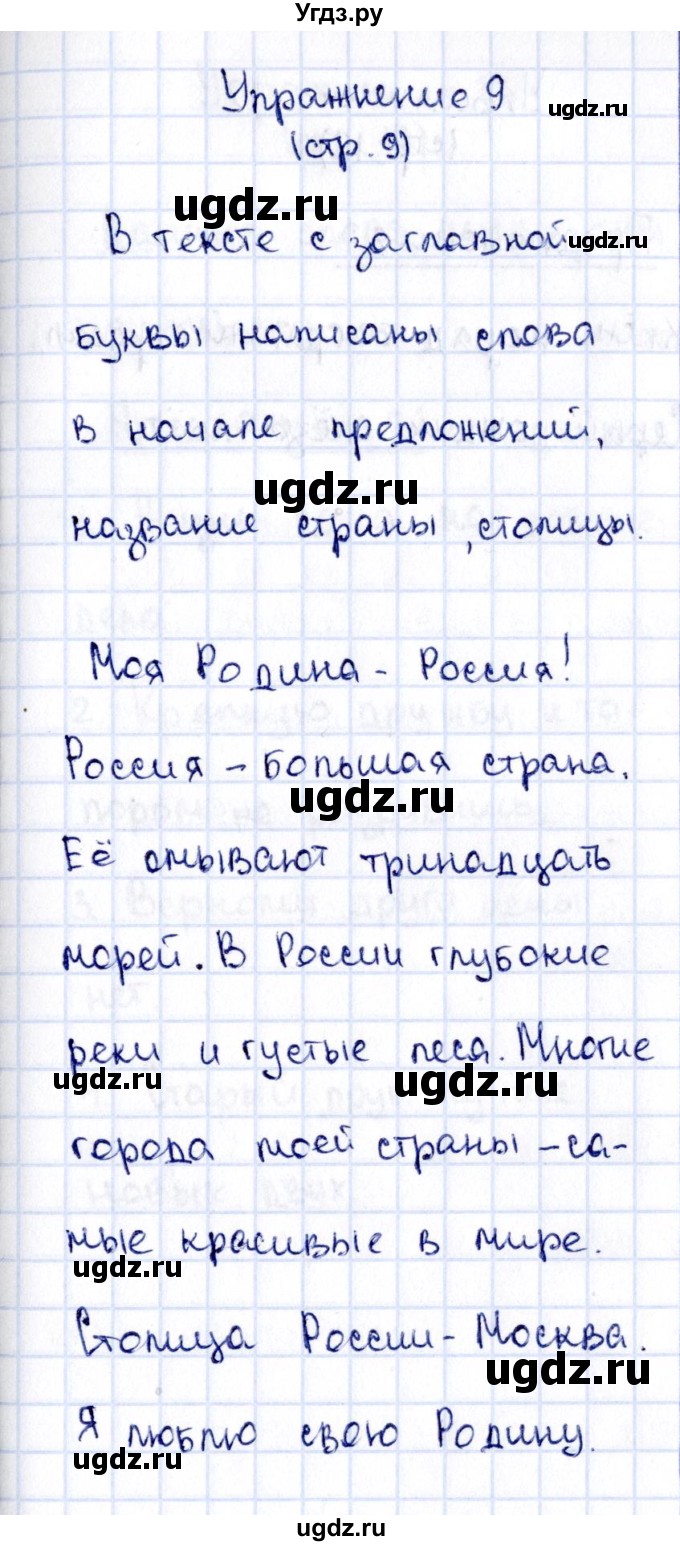 Угдз.ру
Упражнение 9
ugdz.ru
(стр. 9)
ugdz.ru
В тексте с заглавной
ugdz.ru
буквы написаны слова
в начале предложений,
ugdz.ru
название страны, столицы.
Моя Родина - Россия!
Россия - большая страна.
ugdz.ru
Её омывают тринадцать
морей. В России глубокие
реки и густые леса. Многие
ugdz.ru
ugdz.ru
города моей страны - са-
мые красивые в мире.
ugdz.ru
Столица России - Москва.
ugdz.ru
Я люблю свою Родину.
ugdz.ru
ugdz.ru